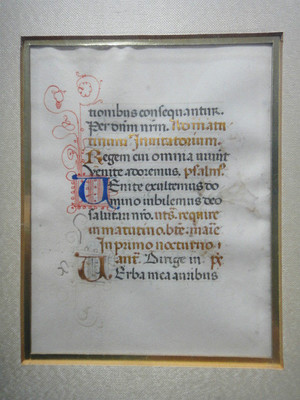 tionibus consequantur.
Per dnm nrm. Ad matu
tinum Invitatorium.
Regem cui omnia vivunt
venite adoremus. psalm⁹
Venite exultemus do
mino iubilemus deo
salutari nro. ut s. require
in matutino bte. marie
In primo nocturno.
ant. Dirige ps
Verba mea auribus